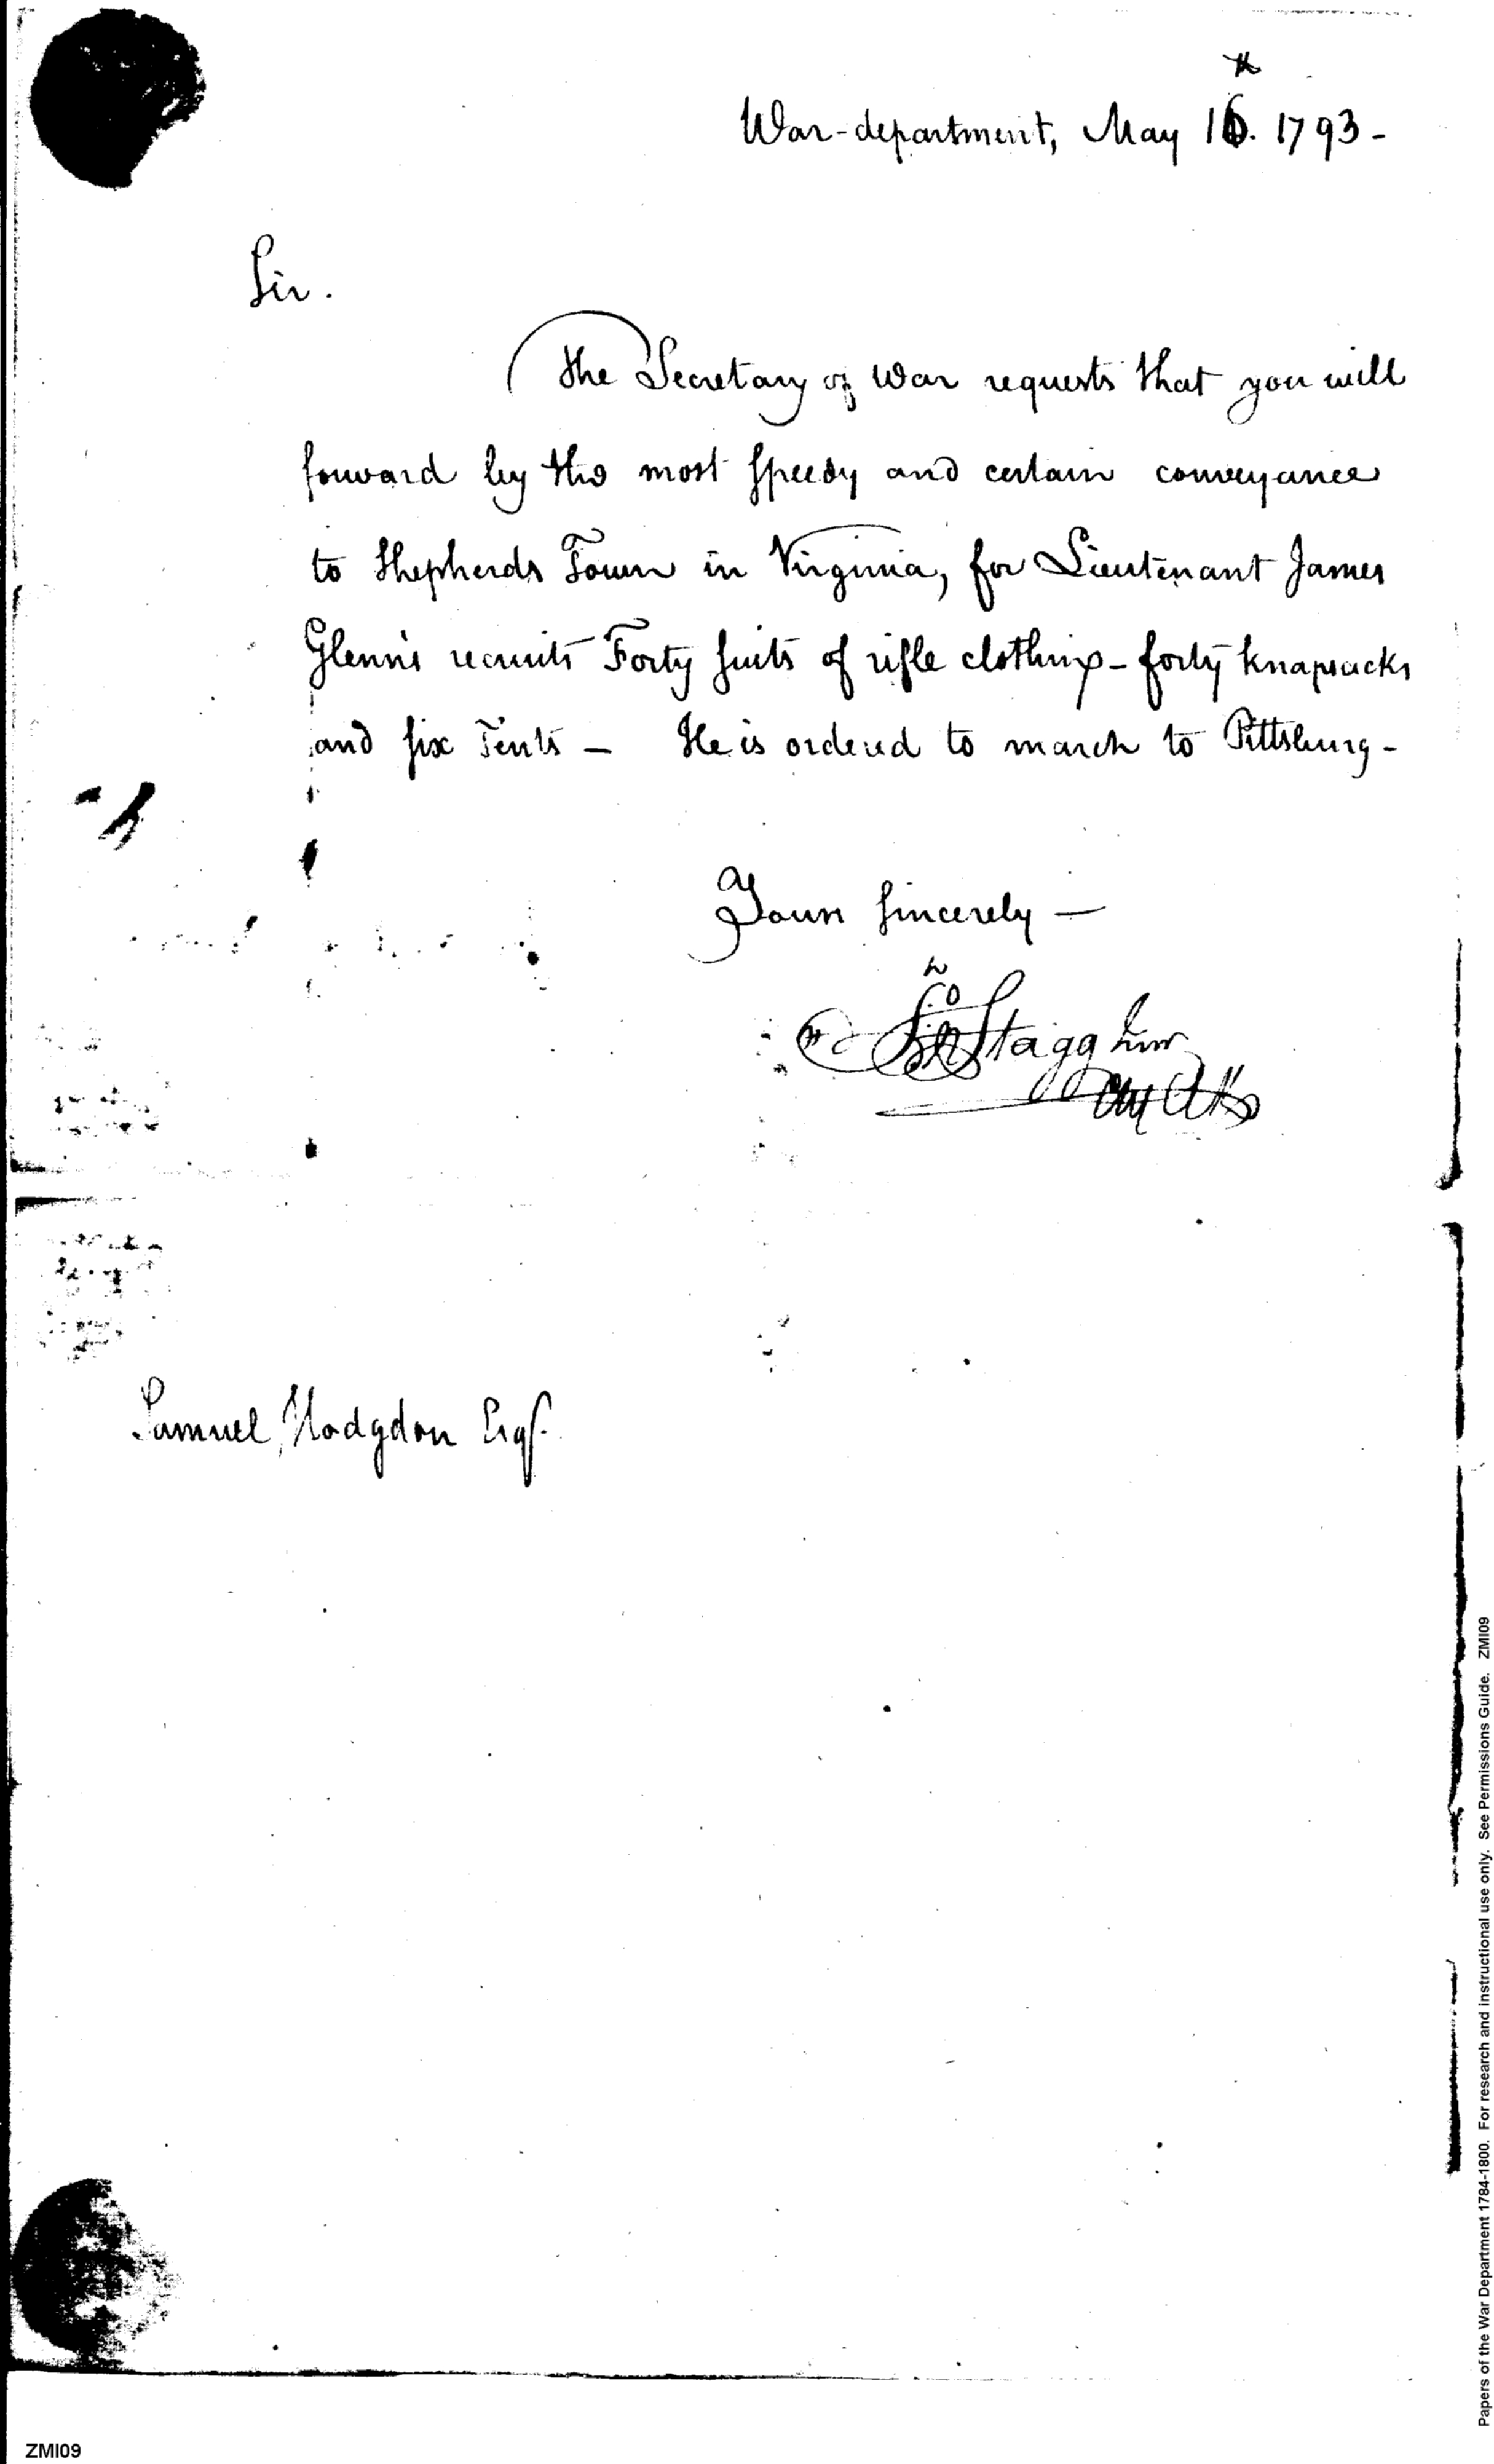 War-department, May 16th. 1793-
Sir.
The Secretary of War requests that you will
forward by the most speedy and certain conveyance
to Shepherds Town in Virginia, for Lieutenant James
Glenn's recruits Forty suits of rifle clothing - forty knapsacks
and six Tents - He is ordered to march to Pittsburg-
Yours sincerely -
Jno Stagg Junr
Samuel Hodgdon Esqr.
Papers of the War Department 1784-1800. For research and instructional use only. See Permissions Guide. ZMI09
ZMI09